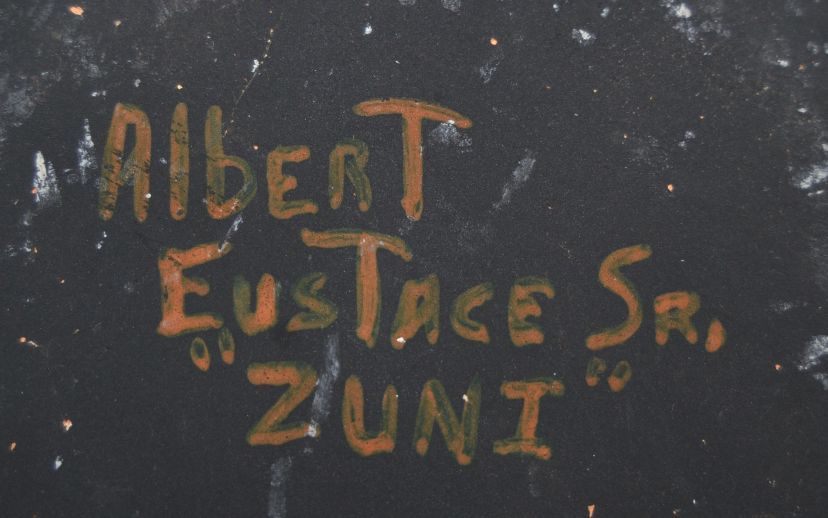 AlbERT
EUSTACE SR.
"ZUNI"